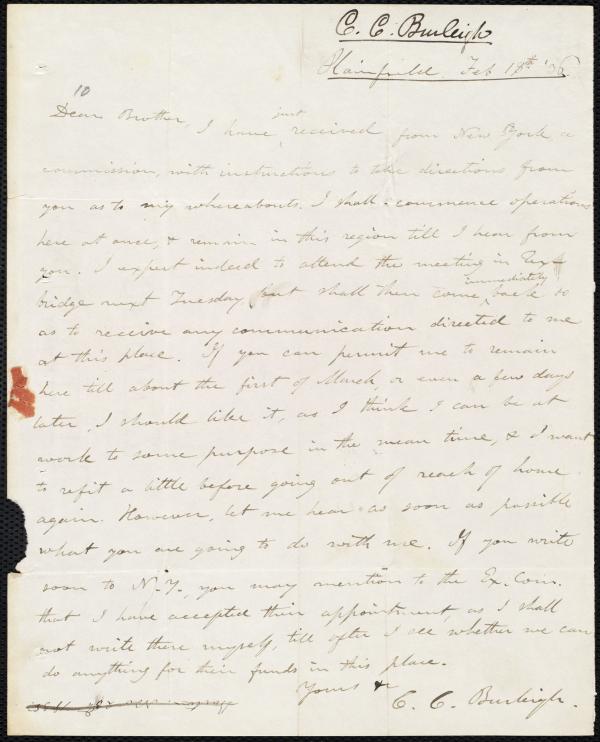 C. C. Burleigh
Plainfield Feb 18th '36
10
Dear Brother, I have just received from New York a
commission, with instructions to take directions from
you as to my whereabouts. I shall commence operations
here at once, & remain in this region till I hear from
you. I expect indeed to attend the meeting in Ux-
bridge next Tuesday but shall then come immediately back so
as to receive any communication directed to me
at this place. If you can permit me to remain
here till about the first of March, or even a few days
later, I should like it, as I think I can be at
work to some purpose in the mean time, & I want
to refit a little before going out of reach of home
again. However, let me hear as soon as possible
what you are going to do with me. If you write
soon to N.Y., you may mention to the Ex. Com.
that I have accepted their appointment, as I shall
not write there myself, till after I see whether we can
do anything for their funds in this place.
Yours &c
C. C. Burleigh.